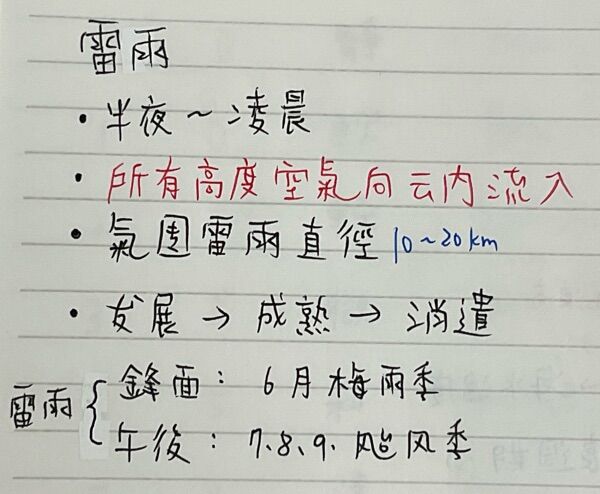 雷雨
• 半夜～凌晨
• 所有高度空氣向云内流入
• 氣团雷雨直徑 10~20km
• 发展→成熟→消遣
雷雨{
鋒面：6月梅雨季
午後：7.8.9.颱风季